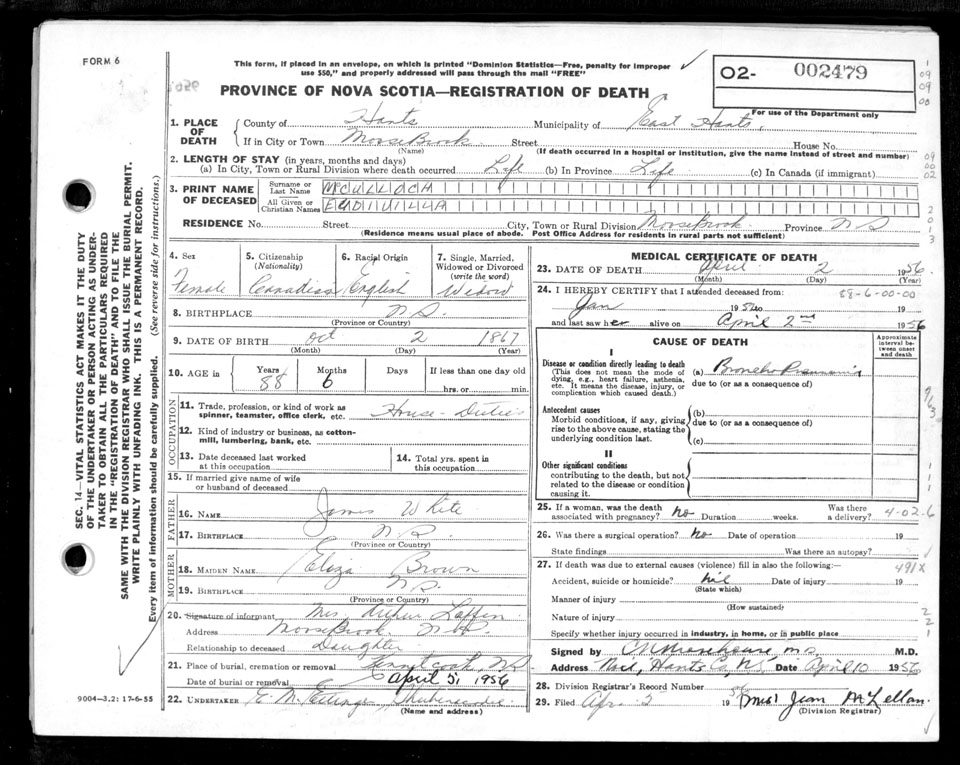 FORM 6
This form, if placed in an envelope, on which is printed "Dominion Statistics—Free, penalty for improper
use $50," and properly addressed will pass through the mail "FREE"
PROVINCE OF NOVA SCOTIA—REGISTRATION OF DEATH
O2- 002479
For use of the Department only
1. PLACE OF DEATH
County of Hants Municipality of East Hants,
If in City or Town MooseBrook Street House No.
(Name) (If death occurred in a hospital or institution, give the name instead of street and number)
2. LENGTH OF STAY (in years, months and days)
(a) In City, Town or Rural Division where death occurred Life (b) In Province Life (c) In Canada (if immigrant)
3. PRINT NAME OF DECEASED
Surname or Last Name McCULLOCH
All Given or Christian Names
RESIDENCE No. Street City, Town or Rural Division MooseBrook Province NS
(Residence means usual place of abode. Post Office Address for residents in rural parts not sufficient)
4. Sex Female
5. Citizenship (Nationality) Canadian
6. Racial Origin English
7. Single, Married, Widowed or Divorced (write the word) Widow
8. BIRTHPLACE N.S.
(Province or Country)
9. DATE OF BIRTH Oct 2 1867
(Month) (Day) (Year)
10. AGE in Years 88 Months 6 Days If less than one day old hrs. or min.
OCCUPATION
11. Trade, profession, or kind of work as spinner, teamster, office clerk, etc. House-Duties
12. Kind of industry or business, as cotton-mill, lumbering, bank, etc.
13. Date deceased last worked at this occupation
14. Total yrs. spent in this occupation
15. If married give name of wife or husband of deceased
FATHER
16. NAME James White
17. BIRTHPLACE N.S.
(Province or Country)
MOTHER
18. MAIDEN NAME Eliza Brown
19. BIRTHPLACE N.S.
(Province or Country)
20. Signature of informant Mrs. Arthur Laffin
Address MooseBrook N.S.
Relationship to deceased Daughter
21. Place of burial, cremation or removal N.S.
Date of burial or removal April 5, 1956
22. UNDERTAKER E. M.
(Name and address)
MEDICAL CERTIFICATE OF DEATH
23. DATE OF DEATH April 2 1956
(Month) (Day) (Year)
24. I HEREBY CERTIFY that I attended deceased from:
88-6-00-00
Jan 1956 19
and last saw her alive on April 2nd 1956
CAUSE OF DEATH
Approximate interval between onset and death
I
Disease or condition directly leading to death
(This does not mean the mode of dying, e.g., heart failure, asthenia, etc. It means the disease, injury, or complication which caused death.)
(a) Broncho Pneumonia
due to (or as a consequence of)
Antecedent causes
Morbid conditions, if any, giving rise to the above cause, stating the underlying condition last.
(b)
due to (or as a consequence of)
(c)
II
Other significant conditions
contributing to the death, but not related to the disease or condition causing it.
25. If a woman, was the death associated with pregnancy? No Duration weeks. Was there a delivery?
4-02-6
26. Was there a surgical operation? No Date of operation 19
State findings Was there an autopsy?
27. If death was due to external causes (violence) fill in also the following:—
491X
Accident, suicide or homicide? nil Date of injury 19
(State which)
Manner of injury
(How sustained)
Nature of injury
Specify whether injury occurred in industry, in home, or in public place
Signed by M.D.
Address Noel, Hants Co, N.S. Date April 10 1956
28. Division Registrar's Record Number
29. Filed Apr. 2 1956 Mrs Jean McLellan
(Division Registrar)
SEC. 14—VITAL STATISTICS ACT MAKES IT THE DUTY
OF THE UNDERTAKER OR PERSON ACTING AS UNDER-
TAKER TO OBTAIN ALL THE PARTICULARS REQUIRED
IN THE "REGISTRATION OF DEATH" AND TO FILE THE
SAME WITH THE DIVISION REGISTRAR WHO SHALL ISSUE THE BURIAL PERMIT.
WRITE PLAINLY WITH UNFADING INK. THIS IS A PERMANENT RECORD.
Every item of information should be carefully supplied. (See reverse side for instructions.)
9004—3.2: 17-6-55